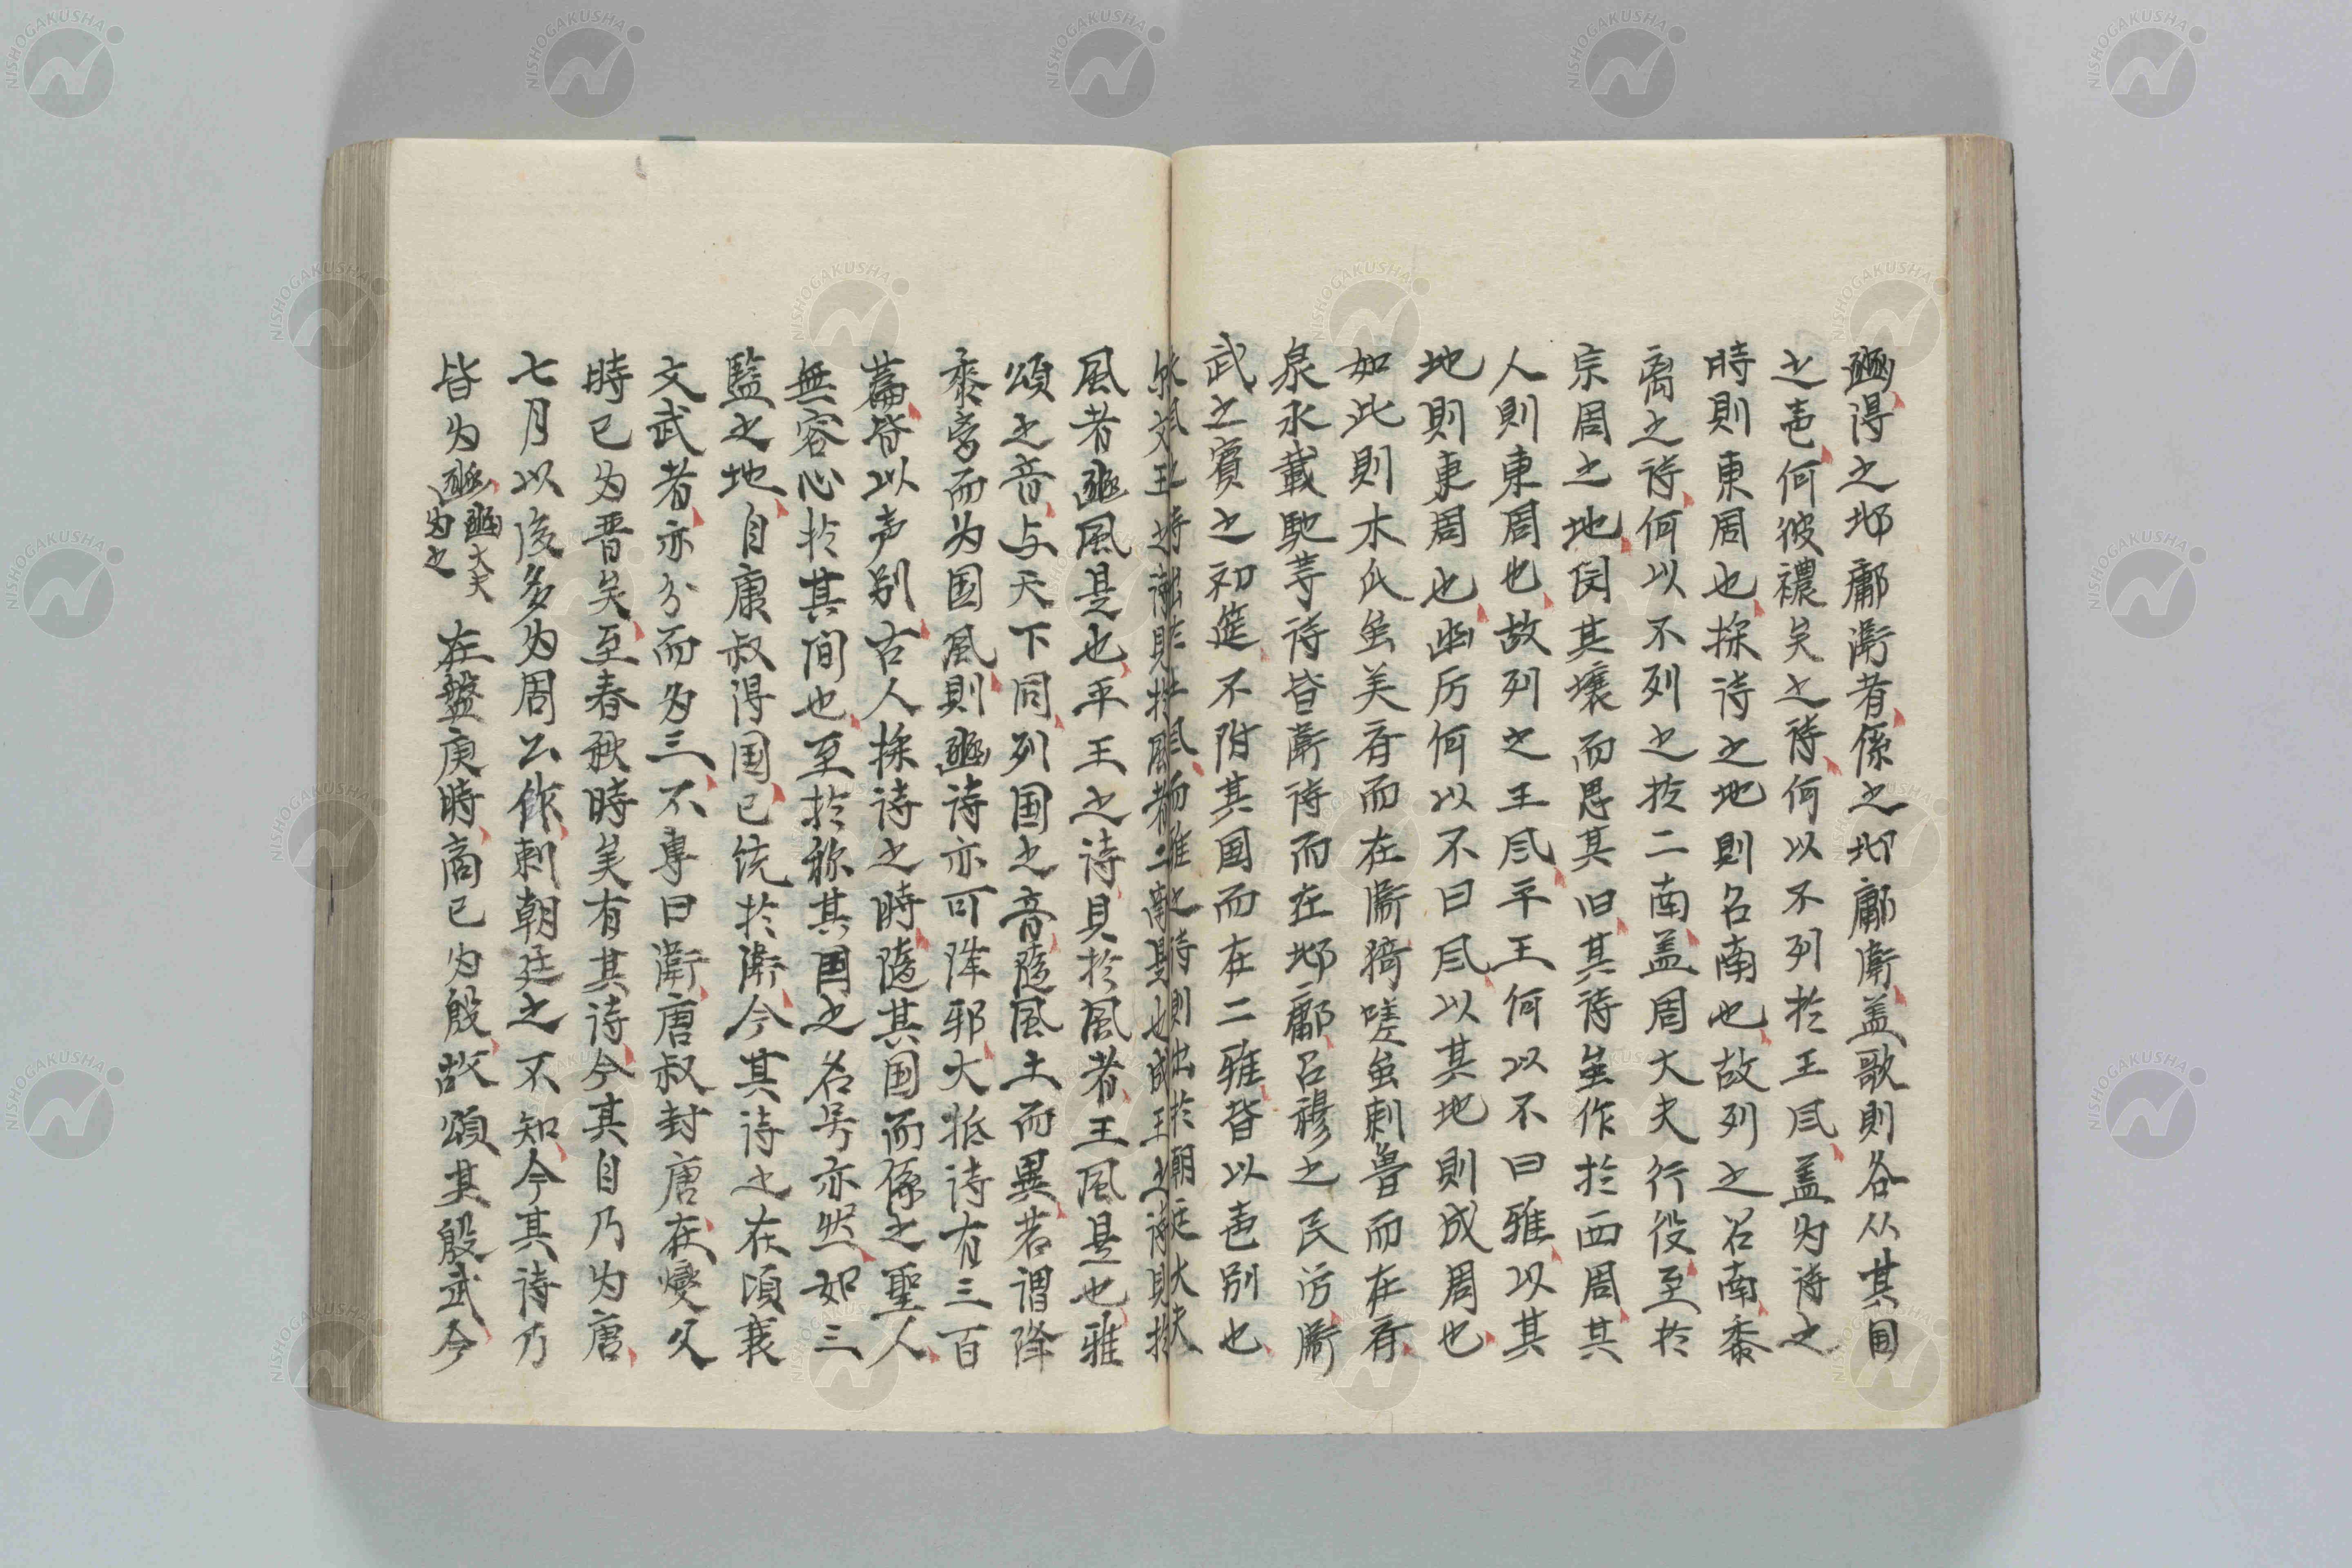 豳得之邶鄘衛者係之邶鄘衛盖歌則各从其国
之声何彼襛矣之诗何以不列於王风盖为诗之
時則東周也採诗之地則召南也故列之召南黍
离之诗何以不列之於二南盖周大夫行役至於
宗周之地闵其壤而思其旧其诗虽作於西周其
人則東周也故列之王风平王何以不曰雅以其
地則東周也幽厉何以不曰风以其地則成周也
如此則木瓜虽美斉而在衛猗嗟虽刺魯而在斉
泉水載馳等诗皆衛诗而在邶鄘召穆之民労衛
武之賓之初筵不附其国而在二雅皆以声別也
而雅之诗則出於朝廷大夫
风者二南是也成王之诗則於
風者豳風是也平王之诗貝於風者王風是也雅
頌之音与天下同列国之音隨風土而異若謂降
黍离而为国風則豳诗亦可降邪大抵诗有三百
篇皆以声別古人採诗之時隨其国而係之聖人
無容心於其间也至於称其国之名号亦然如三
監之地自康叔得国已统於衛今其诗之在頃襄
文武者亦分而为三不專曰衛唐叔封唐在燮父
時已为晋矣至春秋時矣有其诗今其目乃为唐
七月以後多为周公作刺朝廷之不知今其诗乃
皆为豳豳大夫为之在盤庚時商已为殷故頌其殷武今